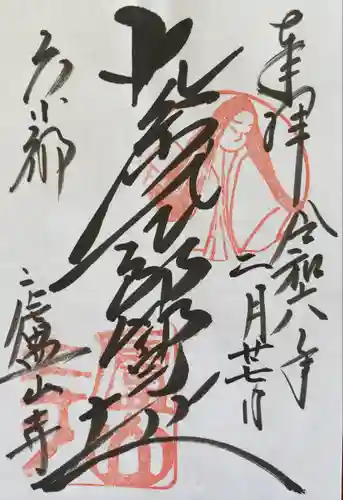 奉拝 令和六年
二月廿七日
紫式部邸宅址
京都
廬山寺